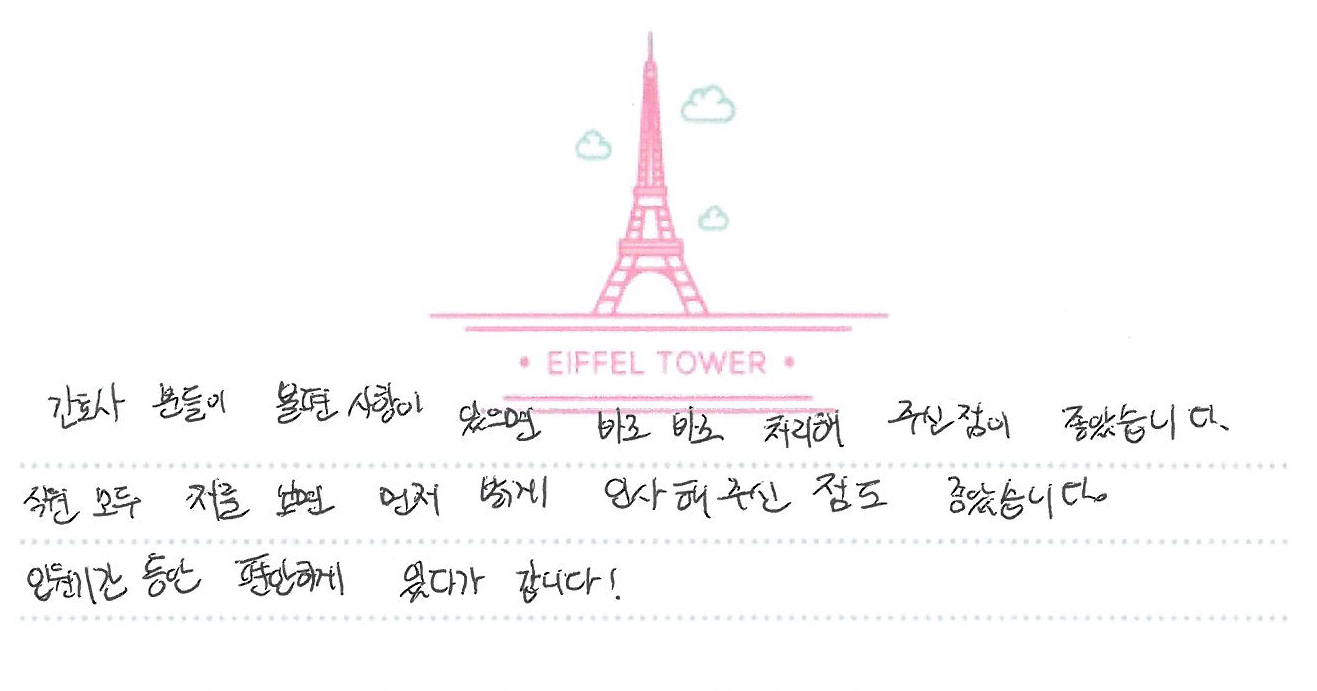 • EIFFEL TOWER •
간호사 분들이 불편 사항이 있으면 바로 바로 처리해 주신 점이 좋았습니다.
직원 모두 저를 보면 먼저 밝게 인사해 주신 점도 좋았습니다.
입원기간 동안 편안하게 있다가 갑니다!